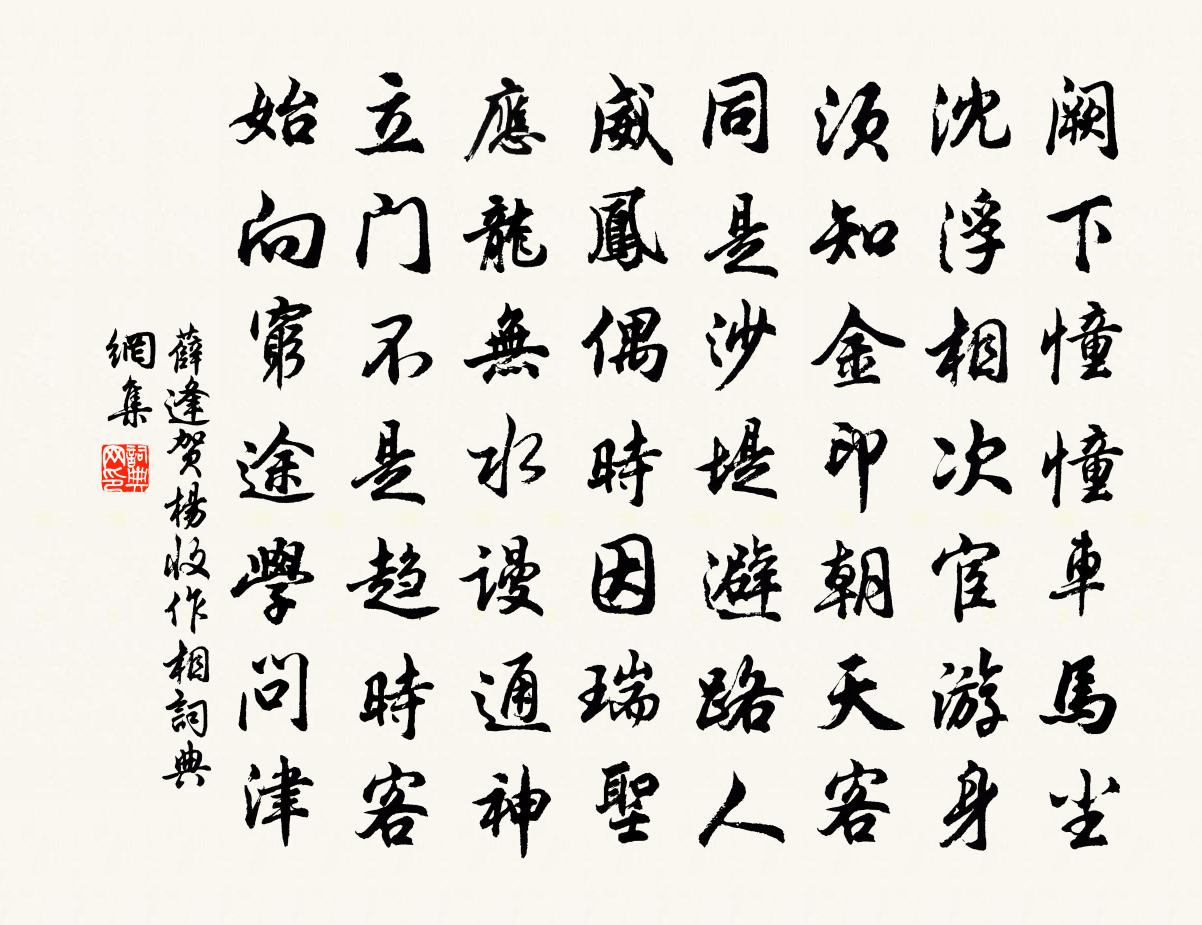 闕下憧憧車馬尘
沈浮相次宦游身
須知金印朝天客
同是沙堤避路人
威鳳偶時因瑞聖
應龍無水謾通神
立門不是趋時客
始向窮途學問津
薛逢贺楊收作相詞典
網集
詞典
网印